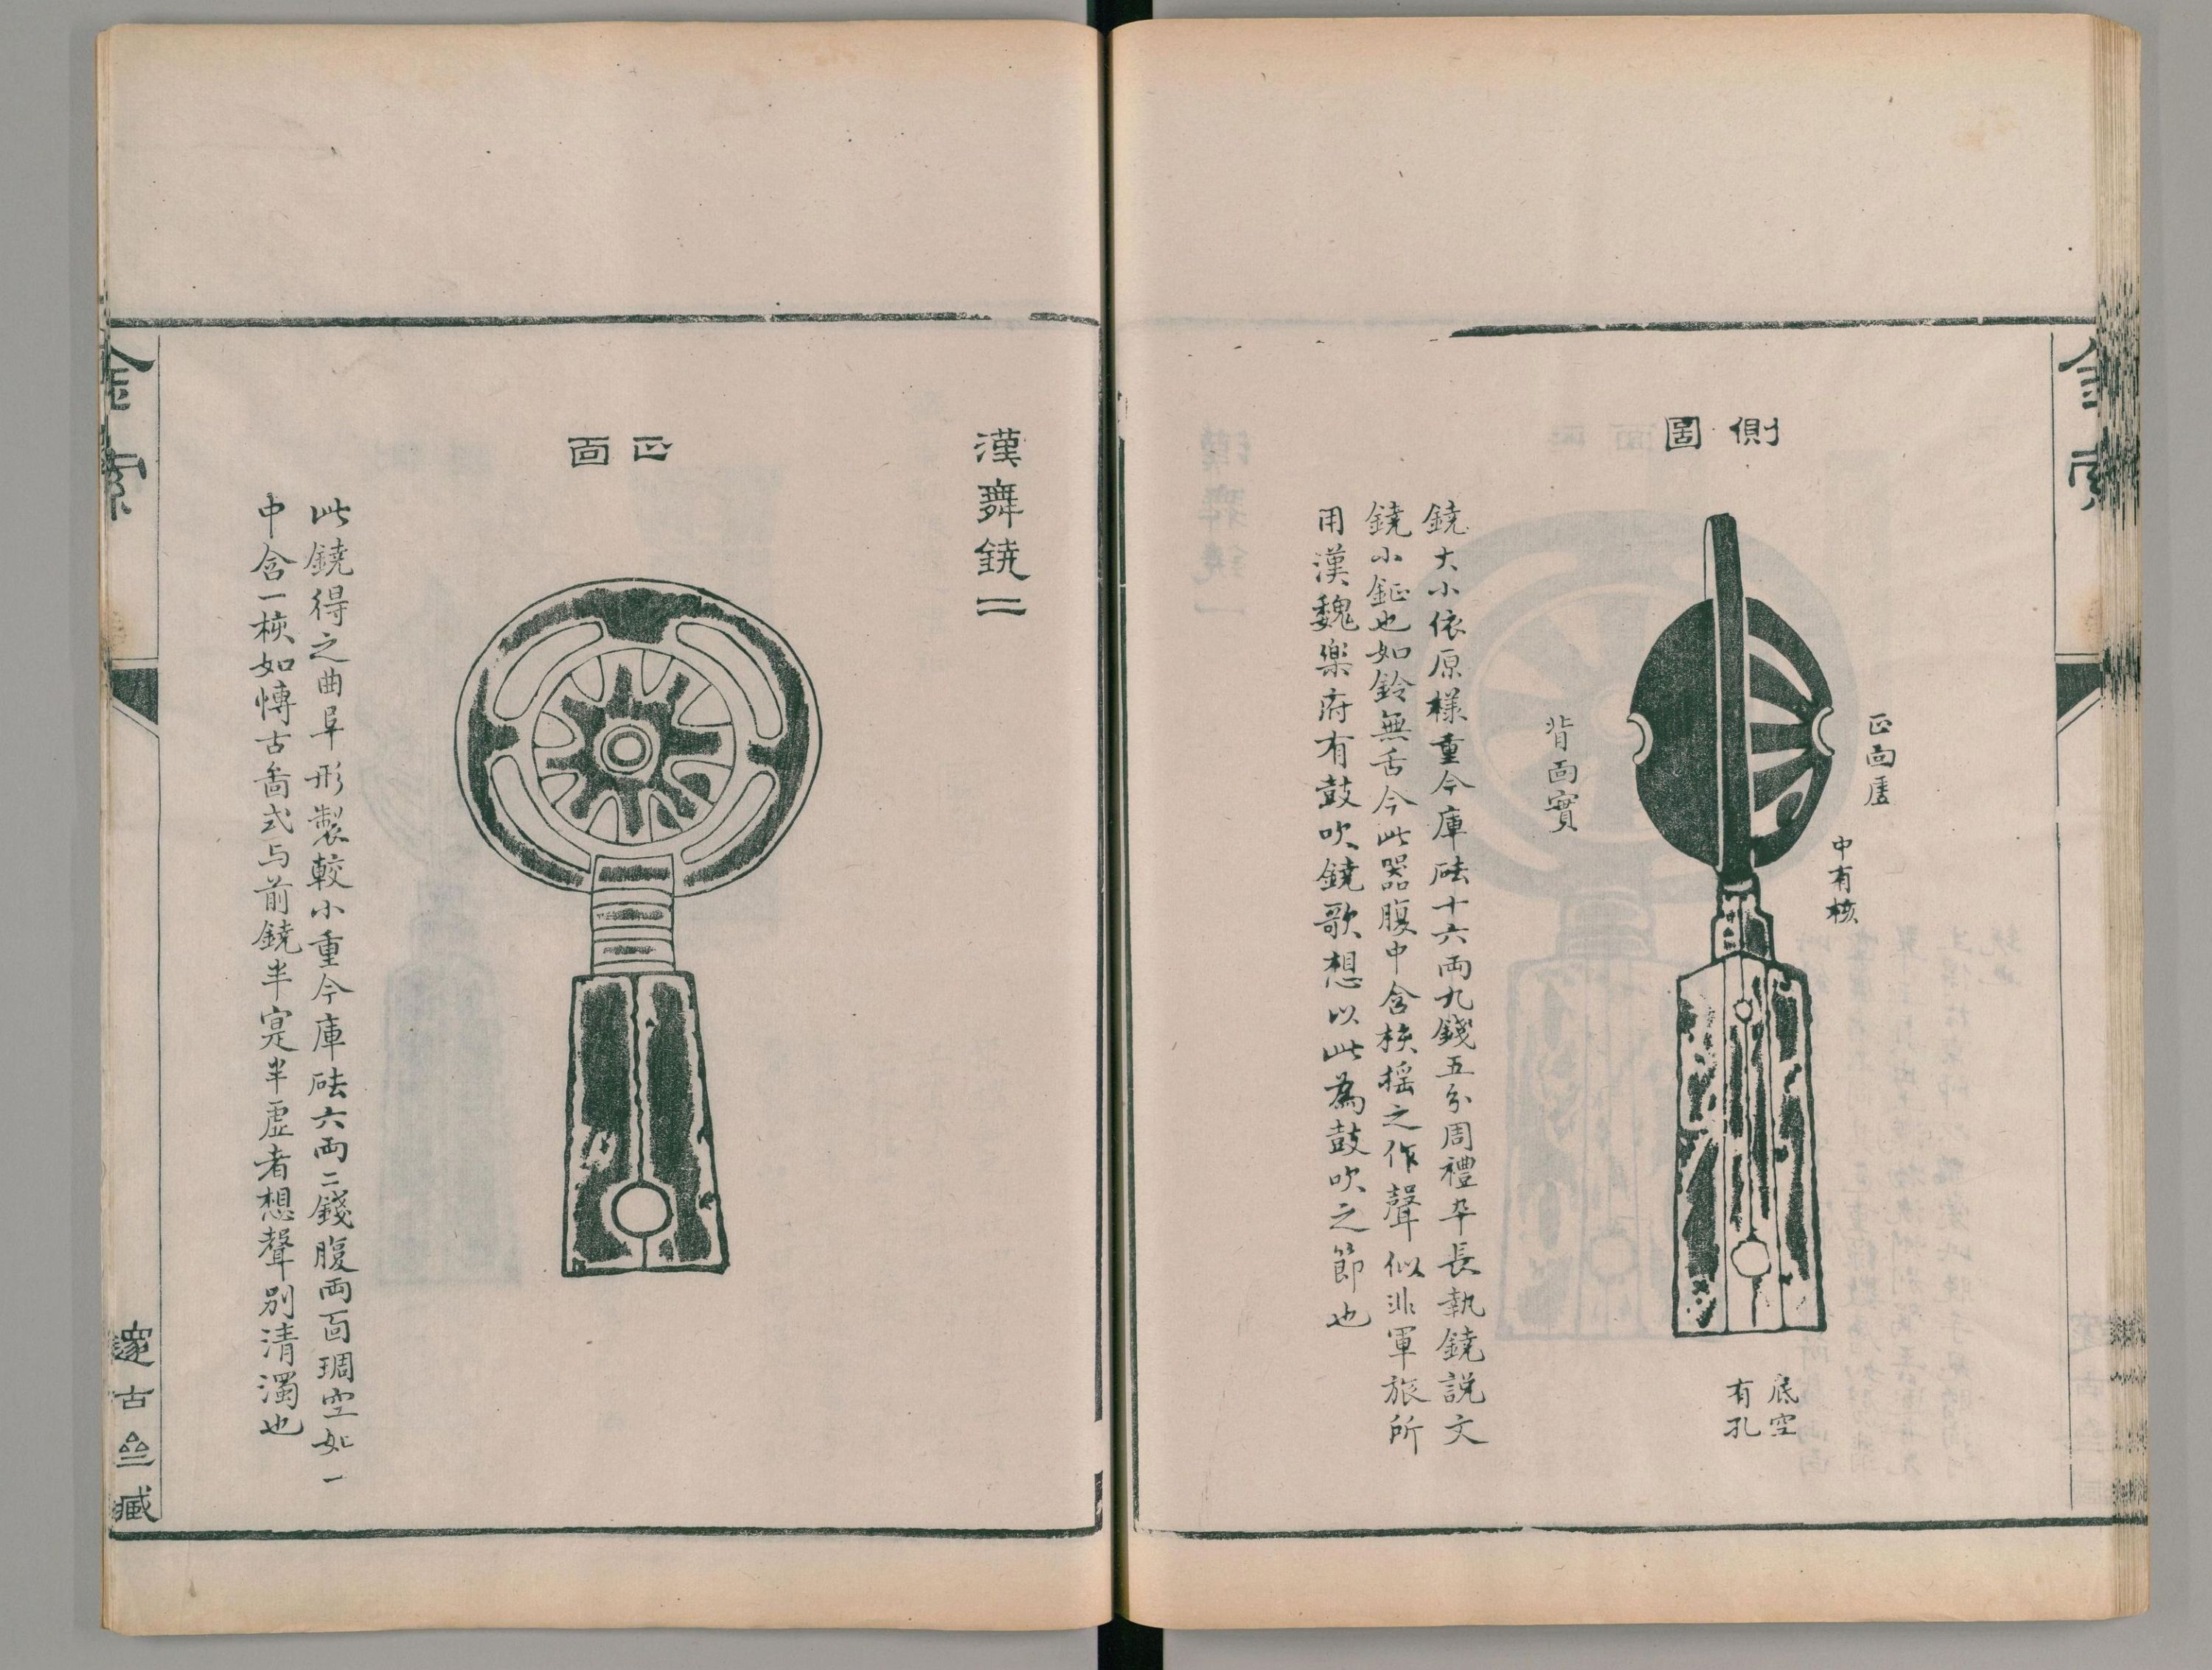 金索
側圖
正面虛
中有核
背面實
底空
有孔
鐃大小依原樣重今庫砝十六両九錢五分周禮卒長執鐃說文
鐃小鉦也如鈴無舌今此器腹中含核搖之作聲似非軍旅所
用漢魏樂府有鼓吹鐃歌想以此為鼓吹之節也
漢舞鐃二
正面
此鐃得之曲阜形製較小重今庫砝六両二錢腹両面琱空如一
中含一核如博古啚式与前鐃半寔半虛者想聲別清濁也
金索
邃古亝藏